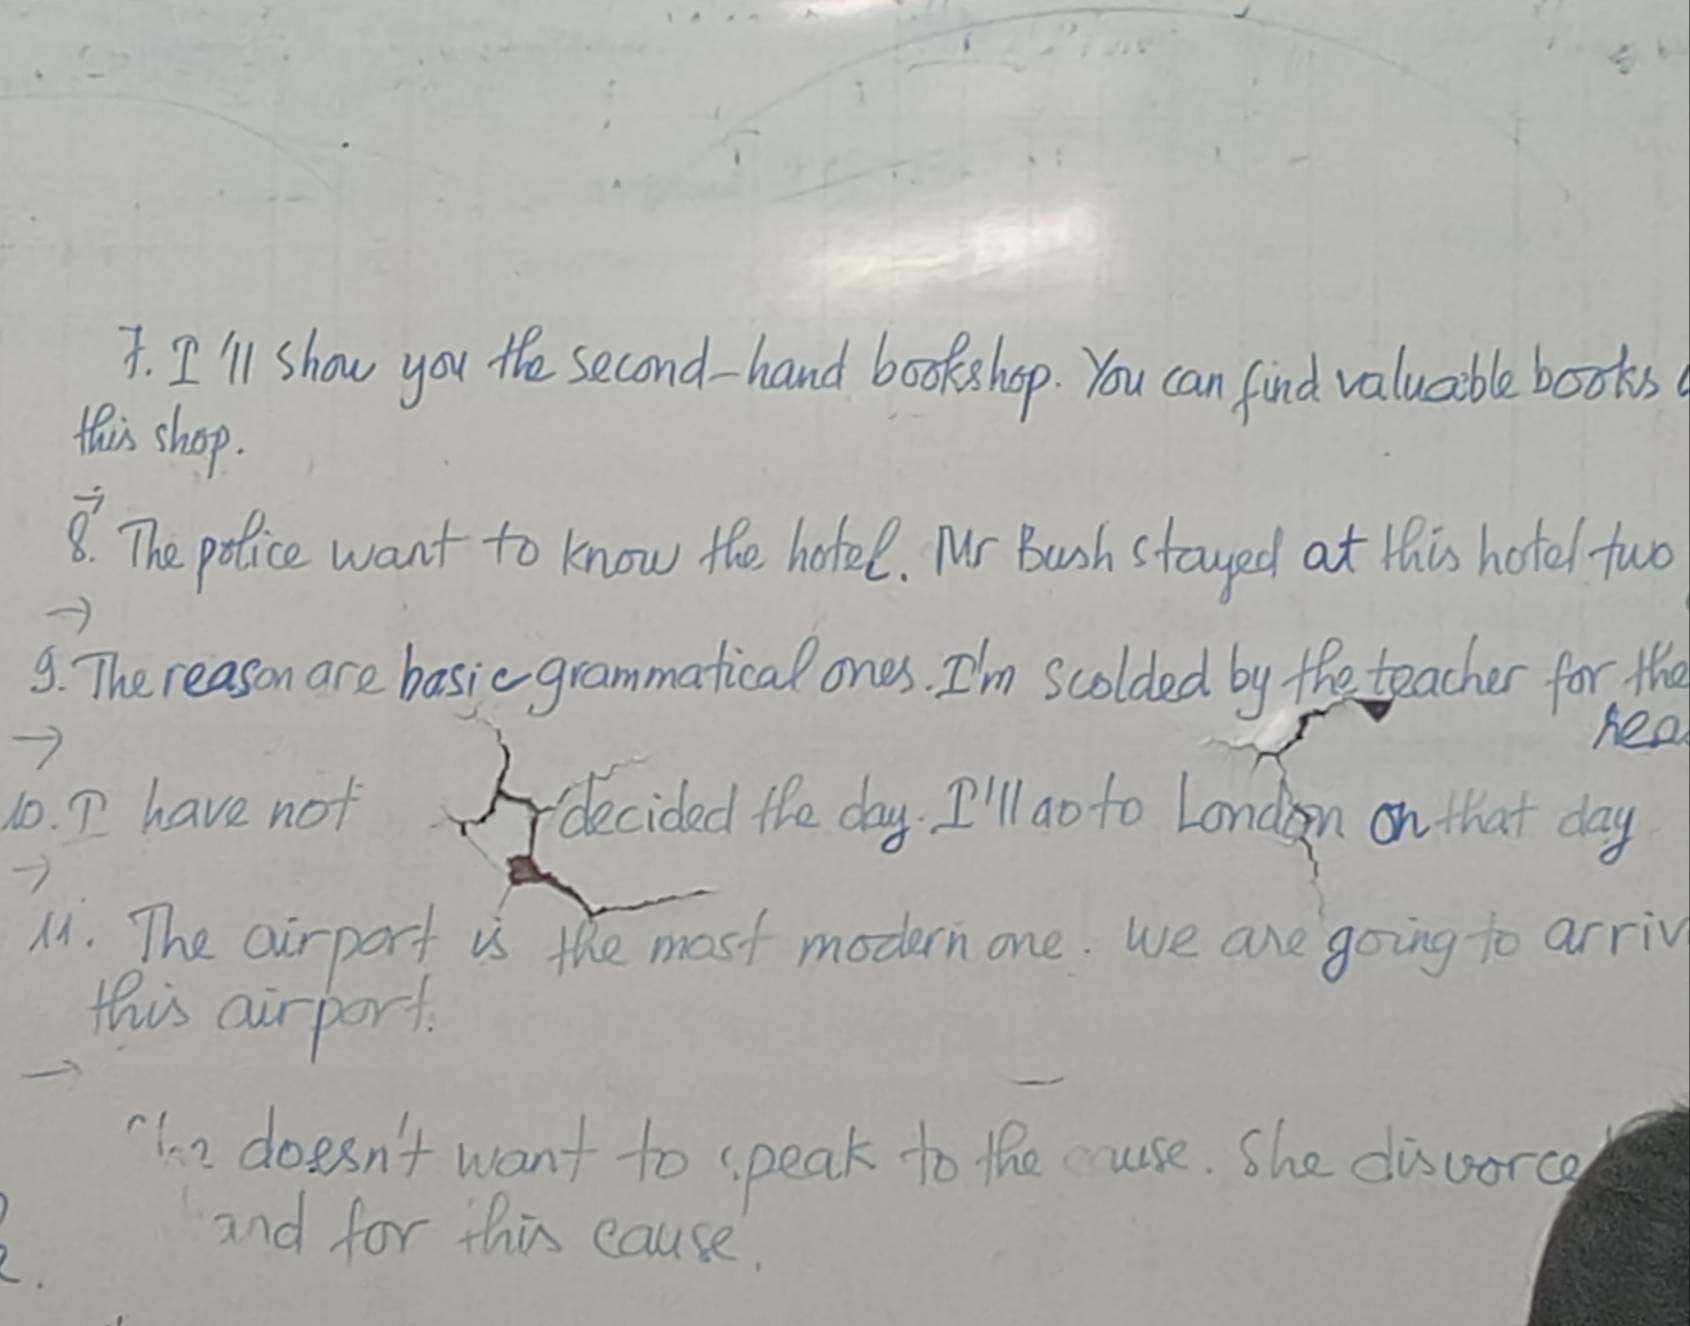 7. I'll show you the second-hand bookshop. You can find valuable books
this shop.
→
8. The police want to know the hotel. Mr Bush stayed at this hotel two
→
9. The reason are basic grammatical ones. I'm scolded by the teacher for the
→
10. I have not decided the day. I'll go to London on that day
→
11. The airport is the most modern one. We are going to
this airport.
→
doesn't want to speak to the cause. She
for this cause.